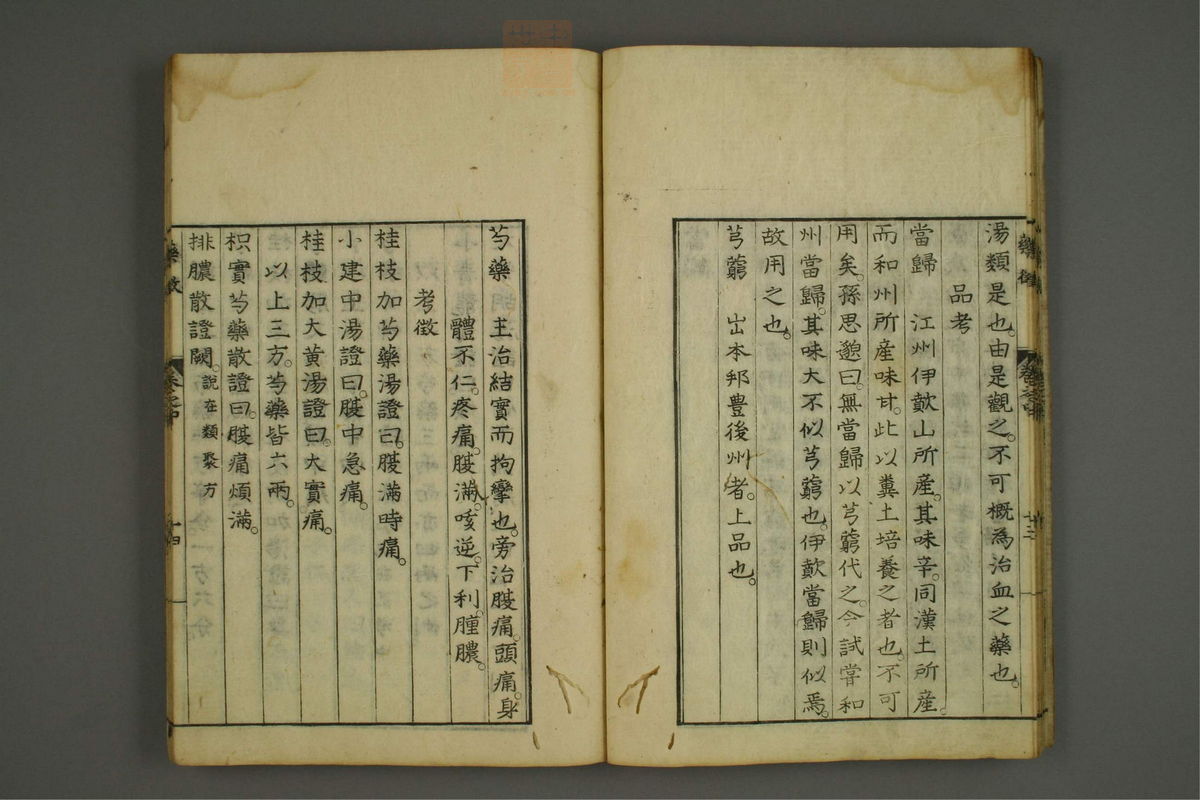 湯類是也。由是觀之。不可概為治血之藥也。
品考
當歸　江州伊歕山所産。其味辛。同漢土所産。
而和州所産味甘。此以糞土培養之者也。不可
用矣。孫思邈曰。無當歸以芎藭代之。今試嘗和
州當歸。其味大不似芎藭也。伊歕當歸則似焉。
故用之也。
芎藭　出本邦豊後州者。上品也。
藥徵
卷之中
十三
芍藥　主治結實而拘攣也。旁治腹痛。頭痛。身
體不仁。疼痛。腹滿。咳逆。下利。腫膿。
考徵
桂枝加芍藥湯證曰。腹滿時痛。
小建中湯證曰。腹中急痛。
桂枝加大黃湯證曰。大實痛。
以上三方。芍藥皆六兩。
枳實芍藥散證曰。腹痛煩滿。
排膿散證闕。說在類聚方
藥徵
卷之中
十四